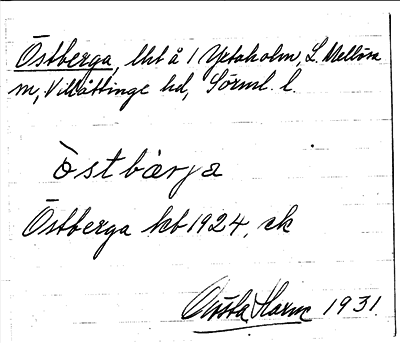 Östberga, lht å 1 Yxtaholm, L. Mellösa
sn, Villåttinge hd, Sörml. l.
östbærja
Östberga kb 1924, ek
Gösta Harm 1931.